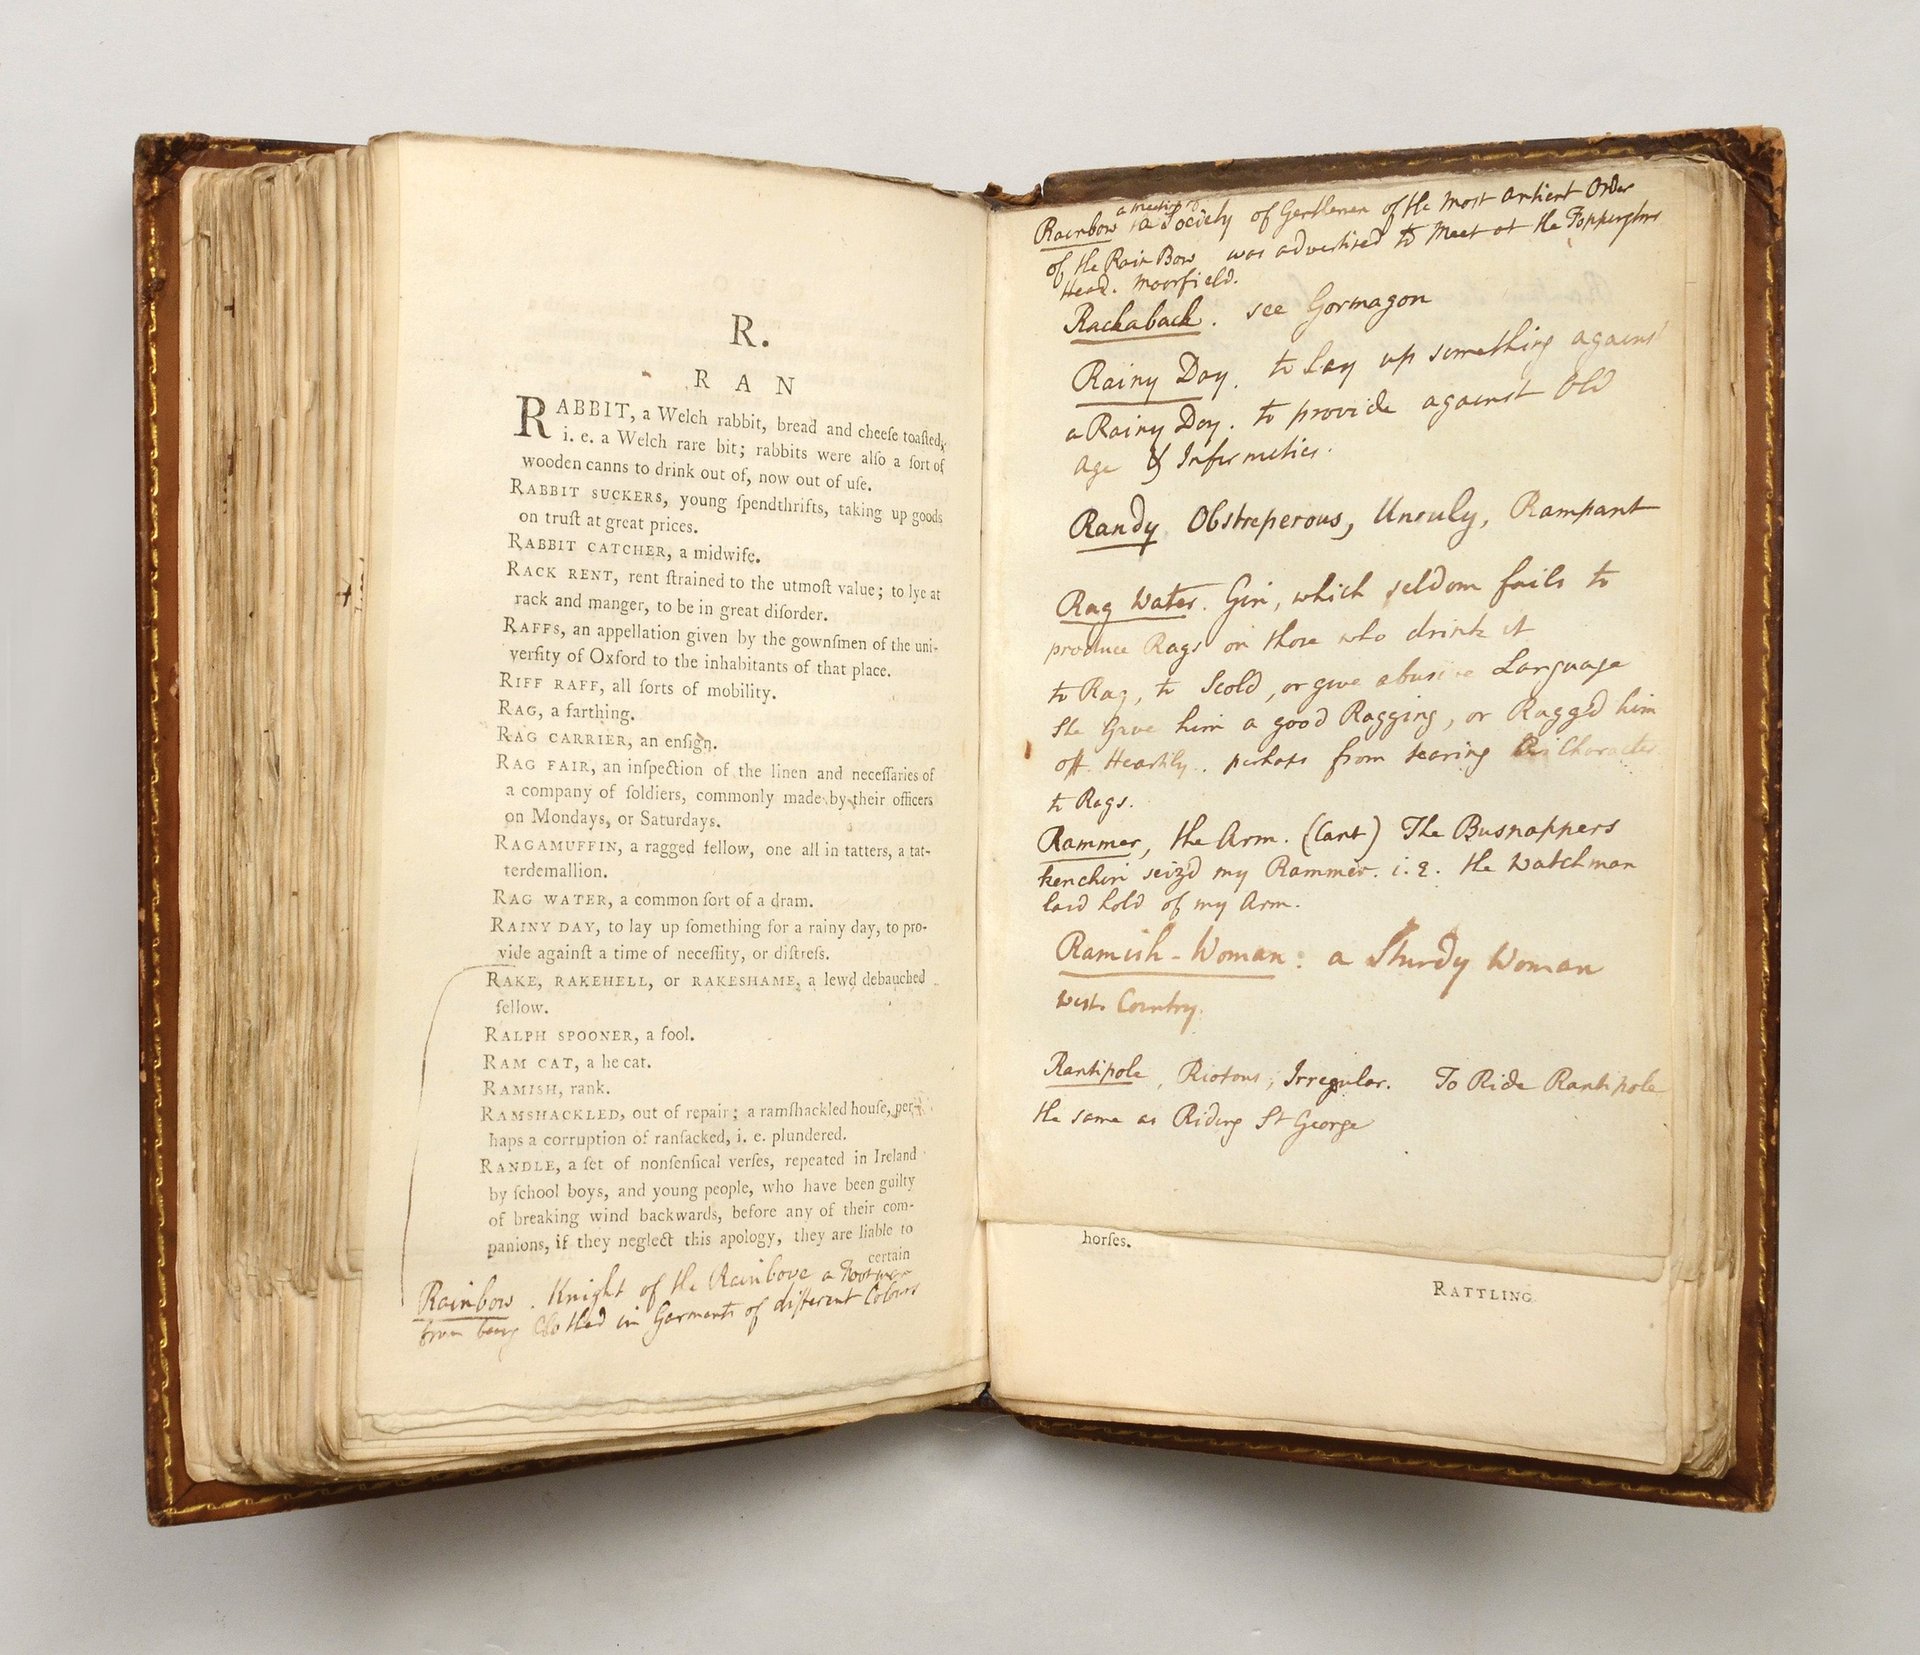 R.
R A N
RABBIT, a Welch rabbit, bread and cheeſe toaſted,
i. e. a Welch rare bit; rabbits were alſo a ſort of
wooden canns to drink out of, now out of uſe.
RABBIT SUCKERS, young ſpendthrifts, taking up goods
on truſt at great prices.
RABBIT CATCHER, a midwife.
RACK RENT, rent ſtrained to the utmoſt value; to lye at
rack and manger, to be in great diſorder.
RAFFS, an appellation given by the gownſmen of the uni-
verſity of Oxford to the inhabitants of that place.
RIFF RAFF, all ſorts of mobility.
RAG, a farthing.
RAG CARRIER, an enſign.
RAG FAIR, an inſpection of the linen and neceſſaries of
a company of ſoldiers, commonly made by their officers
on Mondays, or Saturdays.
RAGAMUFFIN, a ragged fellow, one all in tatters, a tat-
terdemallion.
RAG WATER, a common ſort of a dram.
RAINY DAY, to lay up ſomething for a rainy day, to pro-
vide againſt a time of neceſſity, or diſtreſs.
RAKE, RAKEHELL, or RAKESHAME, a lewd debauched
fellow.
RALPH SPOONER, a fool.
RAM CAT, a he cat.
RAMISH, rank.
RAMSHACKLED, out of repair; a ramſhackled houſe, per-
haps a corruption of ranſacked, i. e. plundered.
RANDLE, a ſet of nonſenſical verſes, repeated in Ireland
by ſchool boys, and young people, who have been guilty
of breaking wind backwards, before any of their com-
panions, if they neglect this apology, they are liable to
certain
Rainbow. Knight of the Rainbove a Footman
from being Clothed in Garments of different Colours
a meeting of
Rainbow a Society of Gentlemen of the most antient Order
of the Rain Bow was advertised to Meet at the Foppingtons
Head. Moorfield.
Rackaback. see Gormagon
Rainy Day. to Lay up something against
a Rainy Day. to provide against Old
age & Infirmities.
Randy Obstreperous, Unruly, Rampant
Rag Water. Gin, which seldom fails to
produce Rags on those who drink it
to Rag, to Scold, or give abusive Language
She Gave him a good Ragging, or Ragg'd him
off Heartily. perhaps from tearing his Character
to Rags.
Rammer, the Arm. (Cant) The Busnappers
kenchin seiz'd my Rammer. i.e. the Watchman
laid hold of my Arm.
Ramish-Woman: a Sturdy Woman
West Country.
Rantipole, Riotous, Irregular. To Ride Rantipole
the same as Riding St George
horſes.
RATTLING